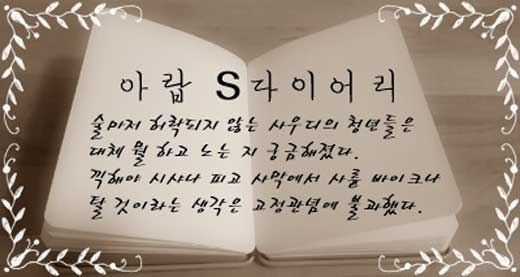 아랍 S다이어리
술마저 허락되지 않는 사우디의 청년들은
대체 뭘 하고 노는 지 궁금해졌다.
끽해야 시샤나 피고 사막에서 사륜 바이크나
탈 것이라는 생각은 고정관념에 불과했다.